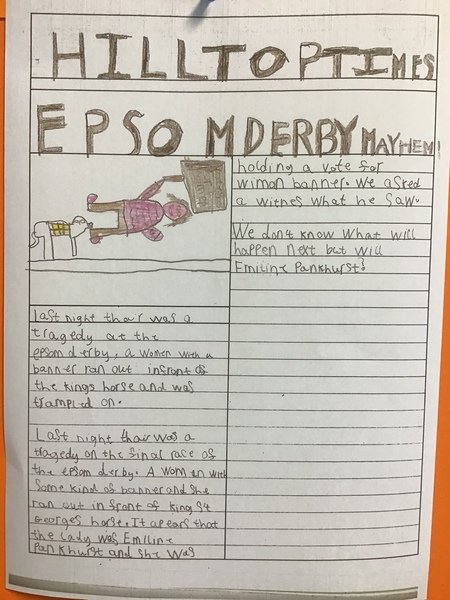 HILLTOP TIMES
EPSOM DERBY MAYHEM!
Last night thair was a
tragedy at the
epsom derby. a women with a
banner ran out infront of
the kings horse and was
trampled on.
Last night thair was a
tragedy on the final race of
the epsom derby. A women with
some kind of banner and she
ran out in front of king st
georges horse. It apears that
the lady was Emiline
Pankhurst and she was
holding a vote for
wimon banner. We asked
a witnes what he saw.
We don't know what will
happen next but will
Emiline Pankhurst?